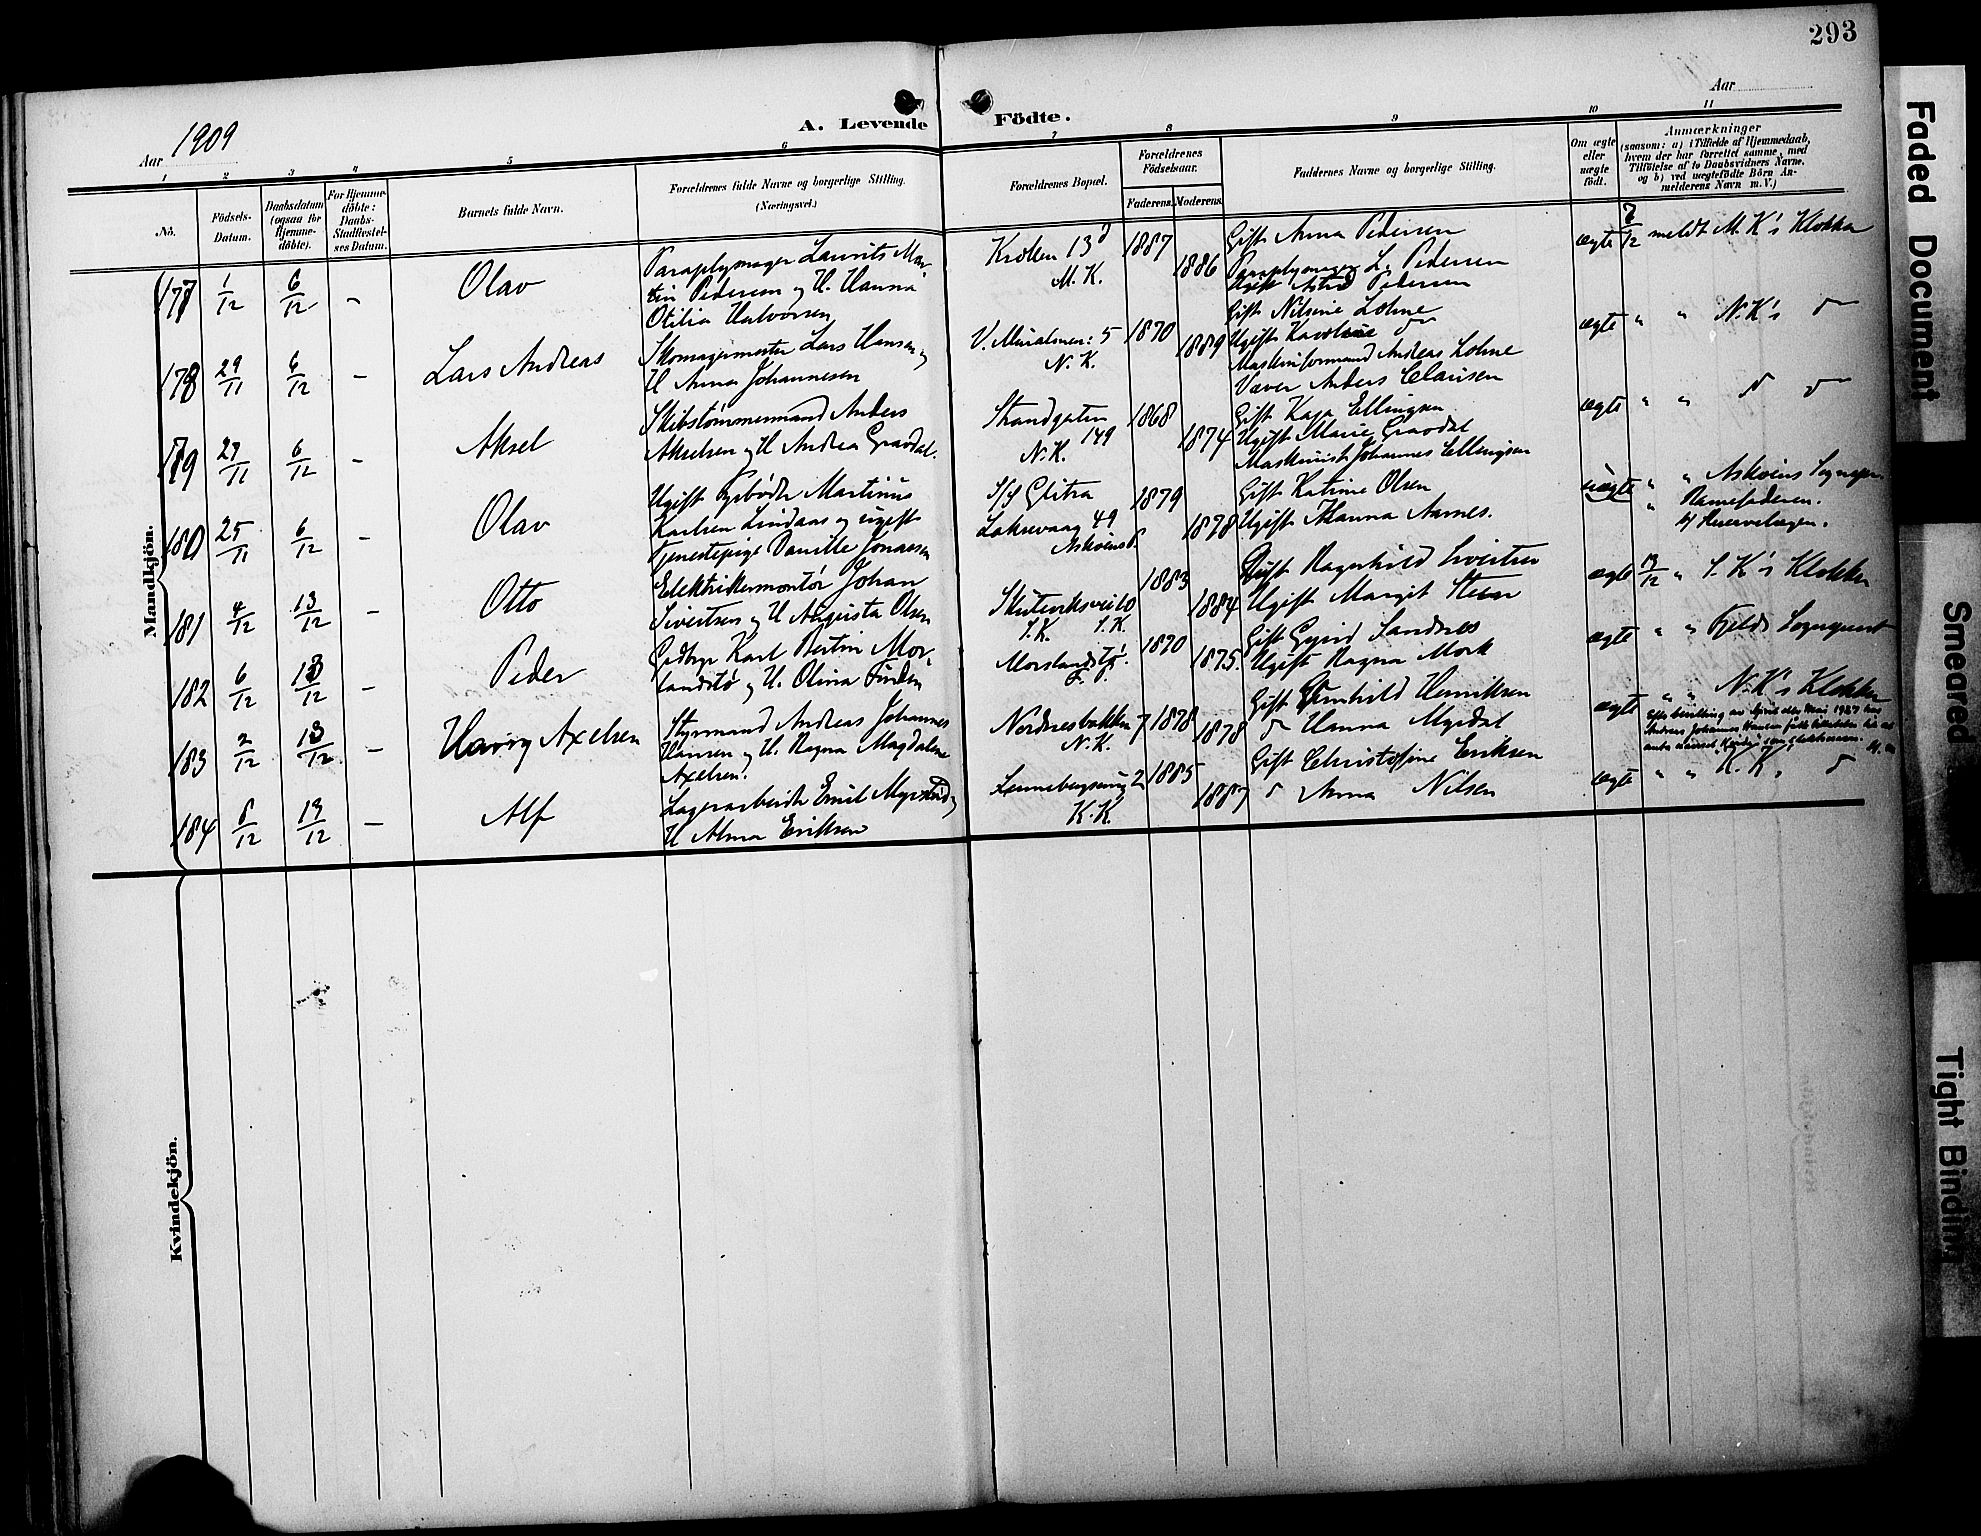 293
Aar 1909
A. Levende Födte.
Aar
1 2 3 4 5 6 7 8 9 10 11
No.
Födsels-Datum.
Daabsdatum (ogsaa for Hjemme-döbte).
For Hjemme-döbte: Daabs-Stadfæstel-ses Datum.
Barnets fulde Navn.
Forældrenes fulde Navne og borgerlige Stilling. (Næringsvei.)
Forældrenes Bopæl.
Forældrenes Födselsaar.
Faderens. Moderens.
Faddernes Navne og borgerlige Stilling.
Om ægte eller uægte födt.
Anmærkninger
(saasom: a) i Tilfælde af Hjemmedaab, hvem der har forrettet samme, med Tilföielse af to Daabsvidners Navne, og b) ved uægtefödte Börn An-melderens Navn m. V.)
Mandkjön.
177 1/12 6/12 - Olav
Paraplymager Laurits Mar-
tin Pedersen og H. Hanna
Otilia Halvorsen
Krollen 13 d
M. K.
1887 1886
Gift Anna Pedersen
Paraplymager L. Pedersen
Ugift Astrid Pedersen
ægte 7/12 meldt M. K's Klokker
178 29/11 6/12 - Lars Andreas
Skomagermester Lars Hansen og
H Anna Johannesen
V. Muralmen: 5
N. K.
1870 1889
Gift Nilsine Lohne
Ugift Karoline do
Maskinformand Andreas Lohne
Væver Anders Clausen
ægte " " N. K's do
179 27/11 6/12 - Aksel
Skibstømmermand Anders
Akselsen og H Andrea Gravdal.
Strandgaten
N. K. 149
1868 1874
Gift Kaja Ellingsen
Ugift Marie Gravdal
Maskinist Johannes Ellingsen
ægte " " do do
180 25/11 6/12 - Olav
Ugift Fyrbøder Martinus
Karlsen Lindaas og ugift
Tjenestepige Vanille Jonassen
S/S Glitra
Laksevaag 49
Askøens
1879 1878
Gift Katrine Olsen
Ugift Hanna Aarnes.
uægte " " Askøens Sognepr.
" Barnefaderen.
" Reservelægen.
181 4/12 13/12 - Otto
Elektrikermontør Johan
Sivertsen og H Augusta Olsen
Skuteviksvei 10
S. K. S. K.
1883 1884
Gift Ragnhild Sivertsen
Ugift Margit Steen
ægte 13/12 " S. K's Klokker
182 6/12 13/12 - Peder
Grdbr. Karl Bertin Mor-
landstø og H. Olina
Morlandstø.
1870 1875.
Gift Gyrid Landnes
Ugift Ragna Mork
ægte " " Fjelds Sogneprest
183 2/12 13/12 - Harry Axelsen
Styrmand Andreas Johannes
Hansen og H. Ragna Magdalene
Axelsen.
Nordnesbakken 7
N. K.
1878 1878
Gift Gunhild Henriksen
do Hanna Myrdal
ægte " " N. K's Klokker
Efter bevilling av April eller Mai 1927 har
Andreas Johannes Hansen
184 5/12 19/12 - Alf
Lagerarbeider Emil Myrstad og
H Alma Eriksen
2
K. K.
1885 1887
Gift Christofine Eriksen
do Anna Nilsen
ægte " " K. K. do
Kvindekjön.
Faded Document
Smeared
Tight Binding